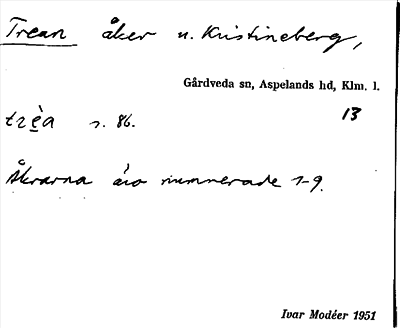 Trean åker u. Kristineberg,
Gårdveda sn, Aspelands hd, Klm. l.
13
trè̱a s. 86.
Åkrarna äro numrerade 1-9.
Ivar Modéer 1951